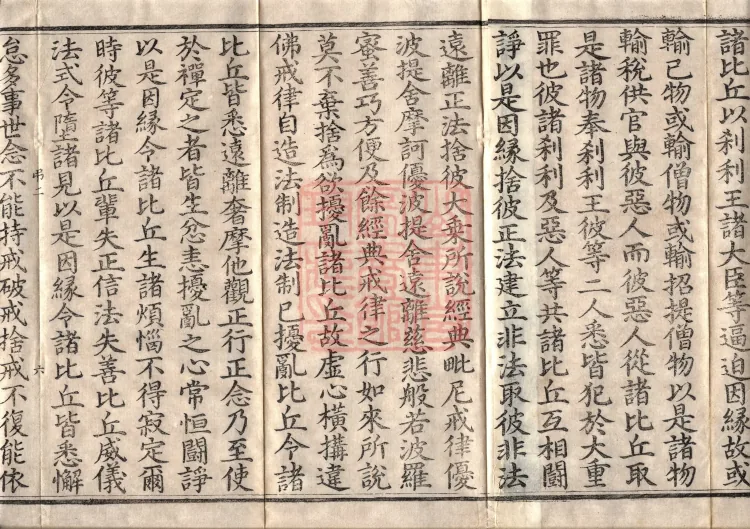 諸比丘以剎利王諸大臣等逼迫因緣故或
輸己物或輸僧物或輸招提僧物以是諸物
輸稅供官與彼惡人而彼惡人從諸比丘取
是諸物奉剎利王彼等二人悉皆犯於大重
罪也彼諸剎利及惡人等共諸比丘互相鬪
諍以是因緣捨彼正法建立非法取彼非法
遠離正法捨彼大乘所說經典毗尼戒律優
波提舍摩訶優波提舍遠離慈悲般若波羅
蜜善巧方便及餘經典戒律之行如來所說
莫不棄捨爲欲擾亂諸比丘故虛心橫搆違
佛戒律自造法制造法制已擾亂比丘令諸
比丘皆悉遠離奢摩他觀正行正念乃至使
於禪定之者皆生忿恚擾亂之心常恒鬪諍
以是因緣令諸比丘生諸煩惱不得寂定爾
時彼等諸比丘輩失正信法失善比丘威儀
法式令墮諸見以是因緣令諸比丘皆悉懈
弔二
六
怠多事世念不能持戒破戒捨戒不復能依